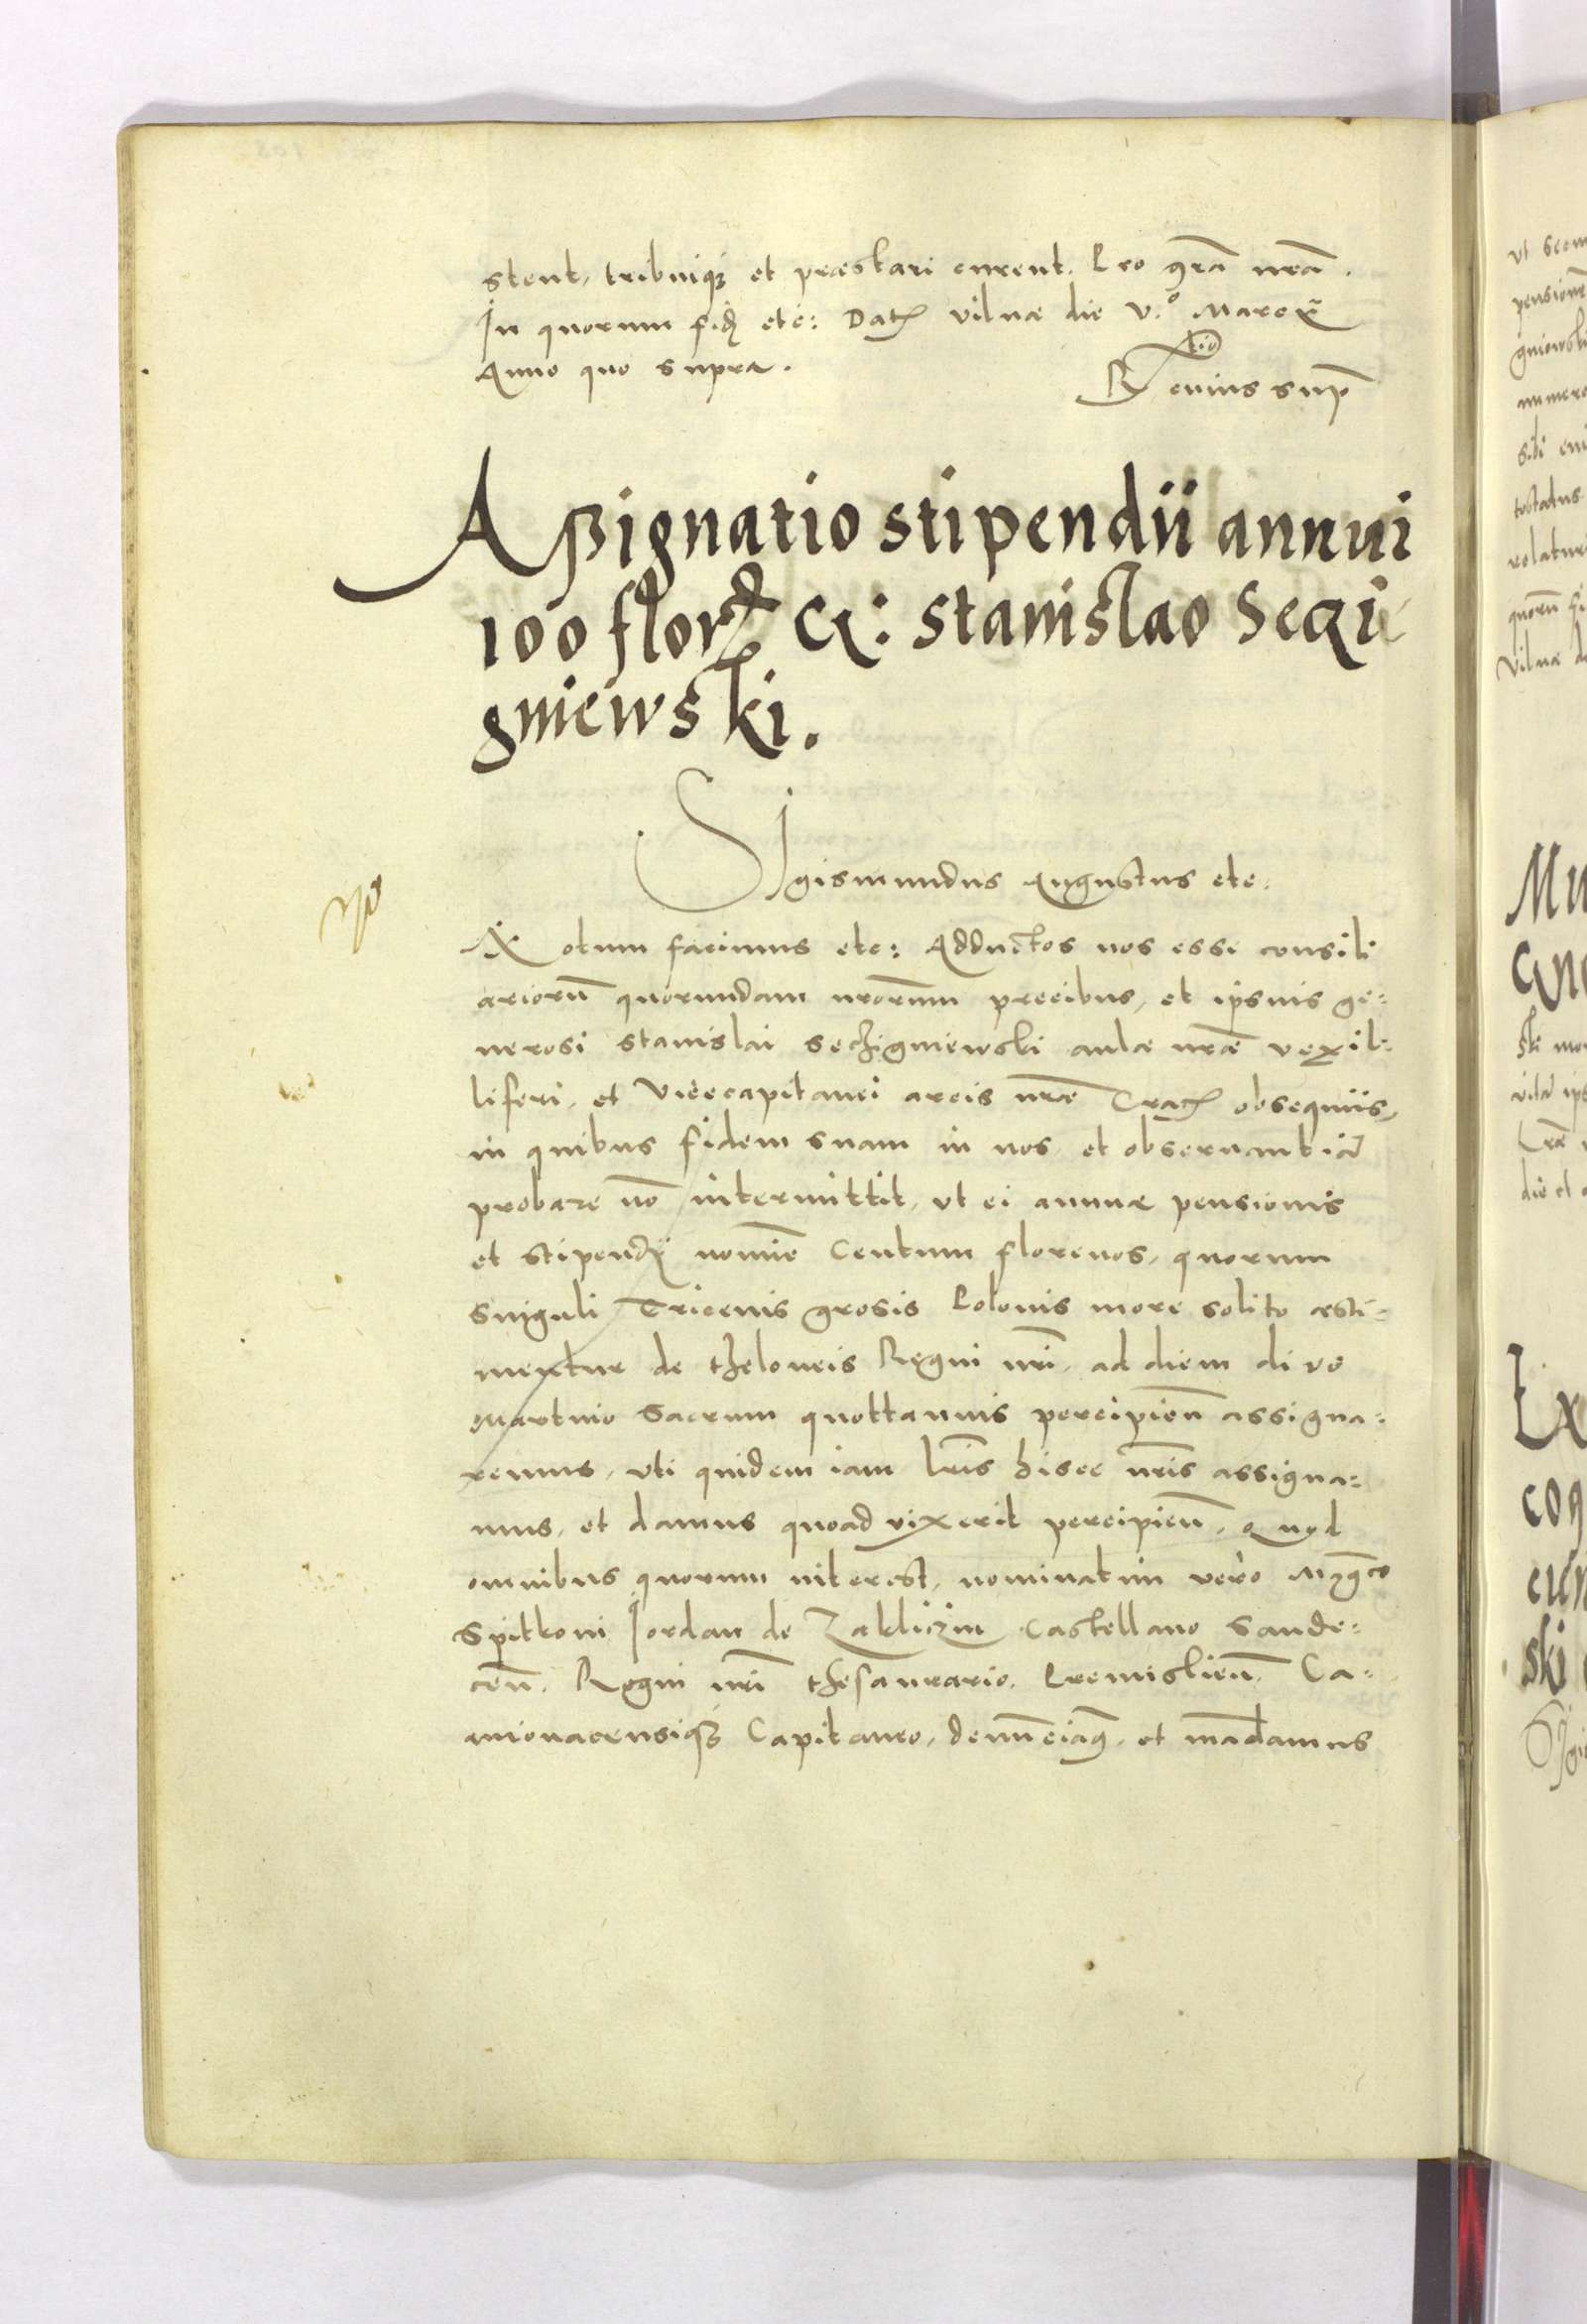 stent, tribuiq; et præstari curent. Pro gr̃a nr̃a.
In quorum fidẽ etc: Dat. Vilnæ die V.º Marcii
Anno quo supra.
R tio cuius sup̃
Aßignatio stipendii annui
100 flor. G: Stanislao Seczi
gniewski.
Sigismundus Augustus etc.
Notum facimus etc: Adductos nos esse consili
ariorũ quorundam nr̃orum precibus, et ip̃suis ge:
nerosi Stanislai Seczigniewski aulæ nr̃æ vexil:
liferi, et Vicecapitanei arcis nr̃æ Crac. obsequiis,
in quibus fidem suam in nos et obseruantiã
probare nõ intermittit, ut ei annuæ pensionis
et stipendii nomĩe Centum florenos, quorum
singuli Tricenis grosis Polonis more solito æsti:
mentur de theloneis Regni nr̃i, ad diem divo
Martino Sacrum quottannis percipien̄ assigna:
remus, uti quidem iam lr̃is hisce nr̃is assigna:
mus, et damus quoad vixerit percipien̄. Quod
omnibus quorum interest, nominatim vero Mg̃co
Spitkoni Jordan de Zakliczin Castellano Sande:
cen̄. Regni nr̃i thesaurario. Premislien̄. Ca:
mionacensiq; Capitaneo, denũciam9, et mãdamus